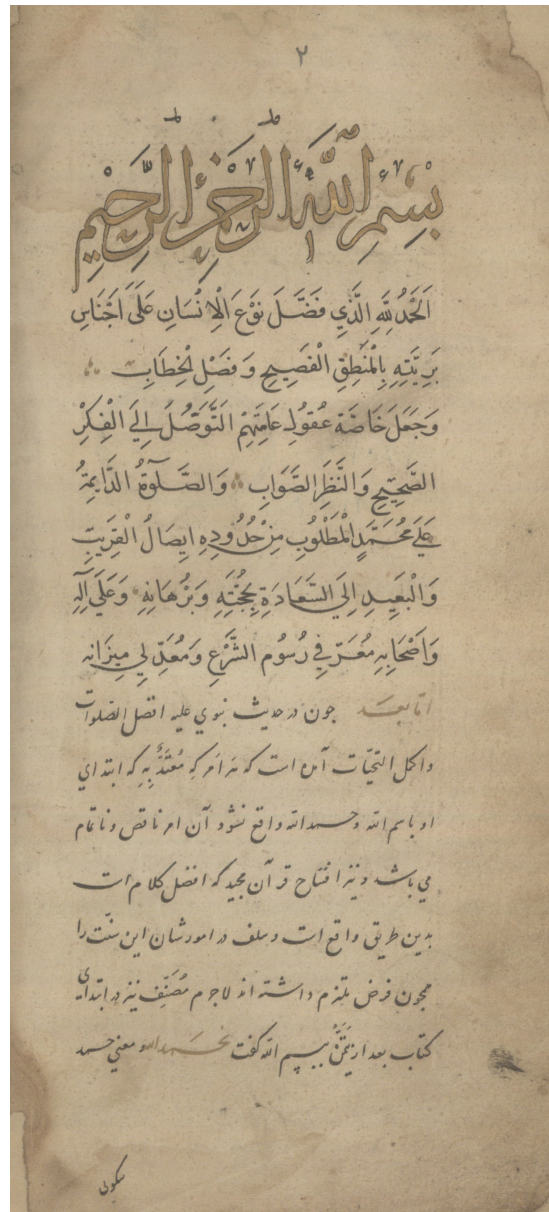 ٢
بِسْمِ اللّٰهِ الرَّحْمٰنِ الرَّحِيمِ
اَلْحَمْدُ لِلّٰهِ الَّذِي فَضَّلَ نَوْعَ الْاِنْسَانِ عَلَى اَجْنَاسِ
بَرِيَّتِهِ بِالْمَنْطِقِ الْفَصِيحِ وَفَصْلِ الْخِطَابِ
وَجَعَلَ خَاصَّةَ عُقُولِ عَامَّتِهِمْ التَّوَصُّلَ اِلَى الْفِكْرِ
الصَّحِيحِ وَالنَّظَرِ الصَّوَابِ وَالصَّلٰوةُ الدَّايِمَةُ
عَلَى مُحَمَّدٍ الْمَطْلُوبِ مِنْ حُدُودِهِ اِيصَالُ الْقَرِيبِ
وَالْبَعِيدِ اِلَى السَّعَادَةِ بِحُجَّتِهِ وَبُرْهَانِهِ وَعَلَى آلِهِ
وَاَصْحَابِهِ مُعَرِّفِي رُسُومِ الشَّرْعِ وَمُعَدِّلِي مِيزَانِه
اما بعد جون در حديث نبوي عليه افضل الصلوات
واكمل التحيّات آمده است كه هر امرى كه مُعْتَدٌّ بِهِ كه ابتداي
او باسم الله وحمد الله واقع نشود آن امر ناقص وناتمام
مي باشد ونيز افتتاح قرآن مجيد كه افضل كلام است
بدين طريق واقع است وسلف در امور شان اين سنّت را
همچون فرض ملتزم داشته اند لاجرم مُصَنِّف نيز در ابتداي
كتاب بعد از تَيَمُّن ببسم الله كفت نحمد الله ومعني حمد